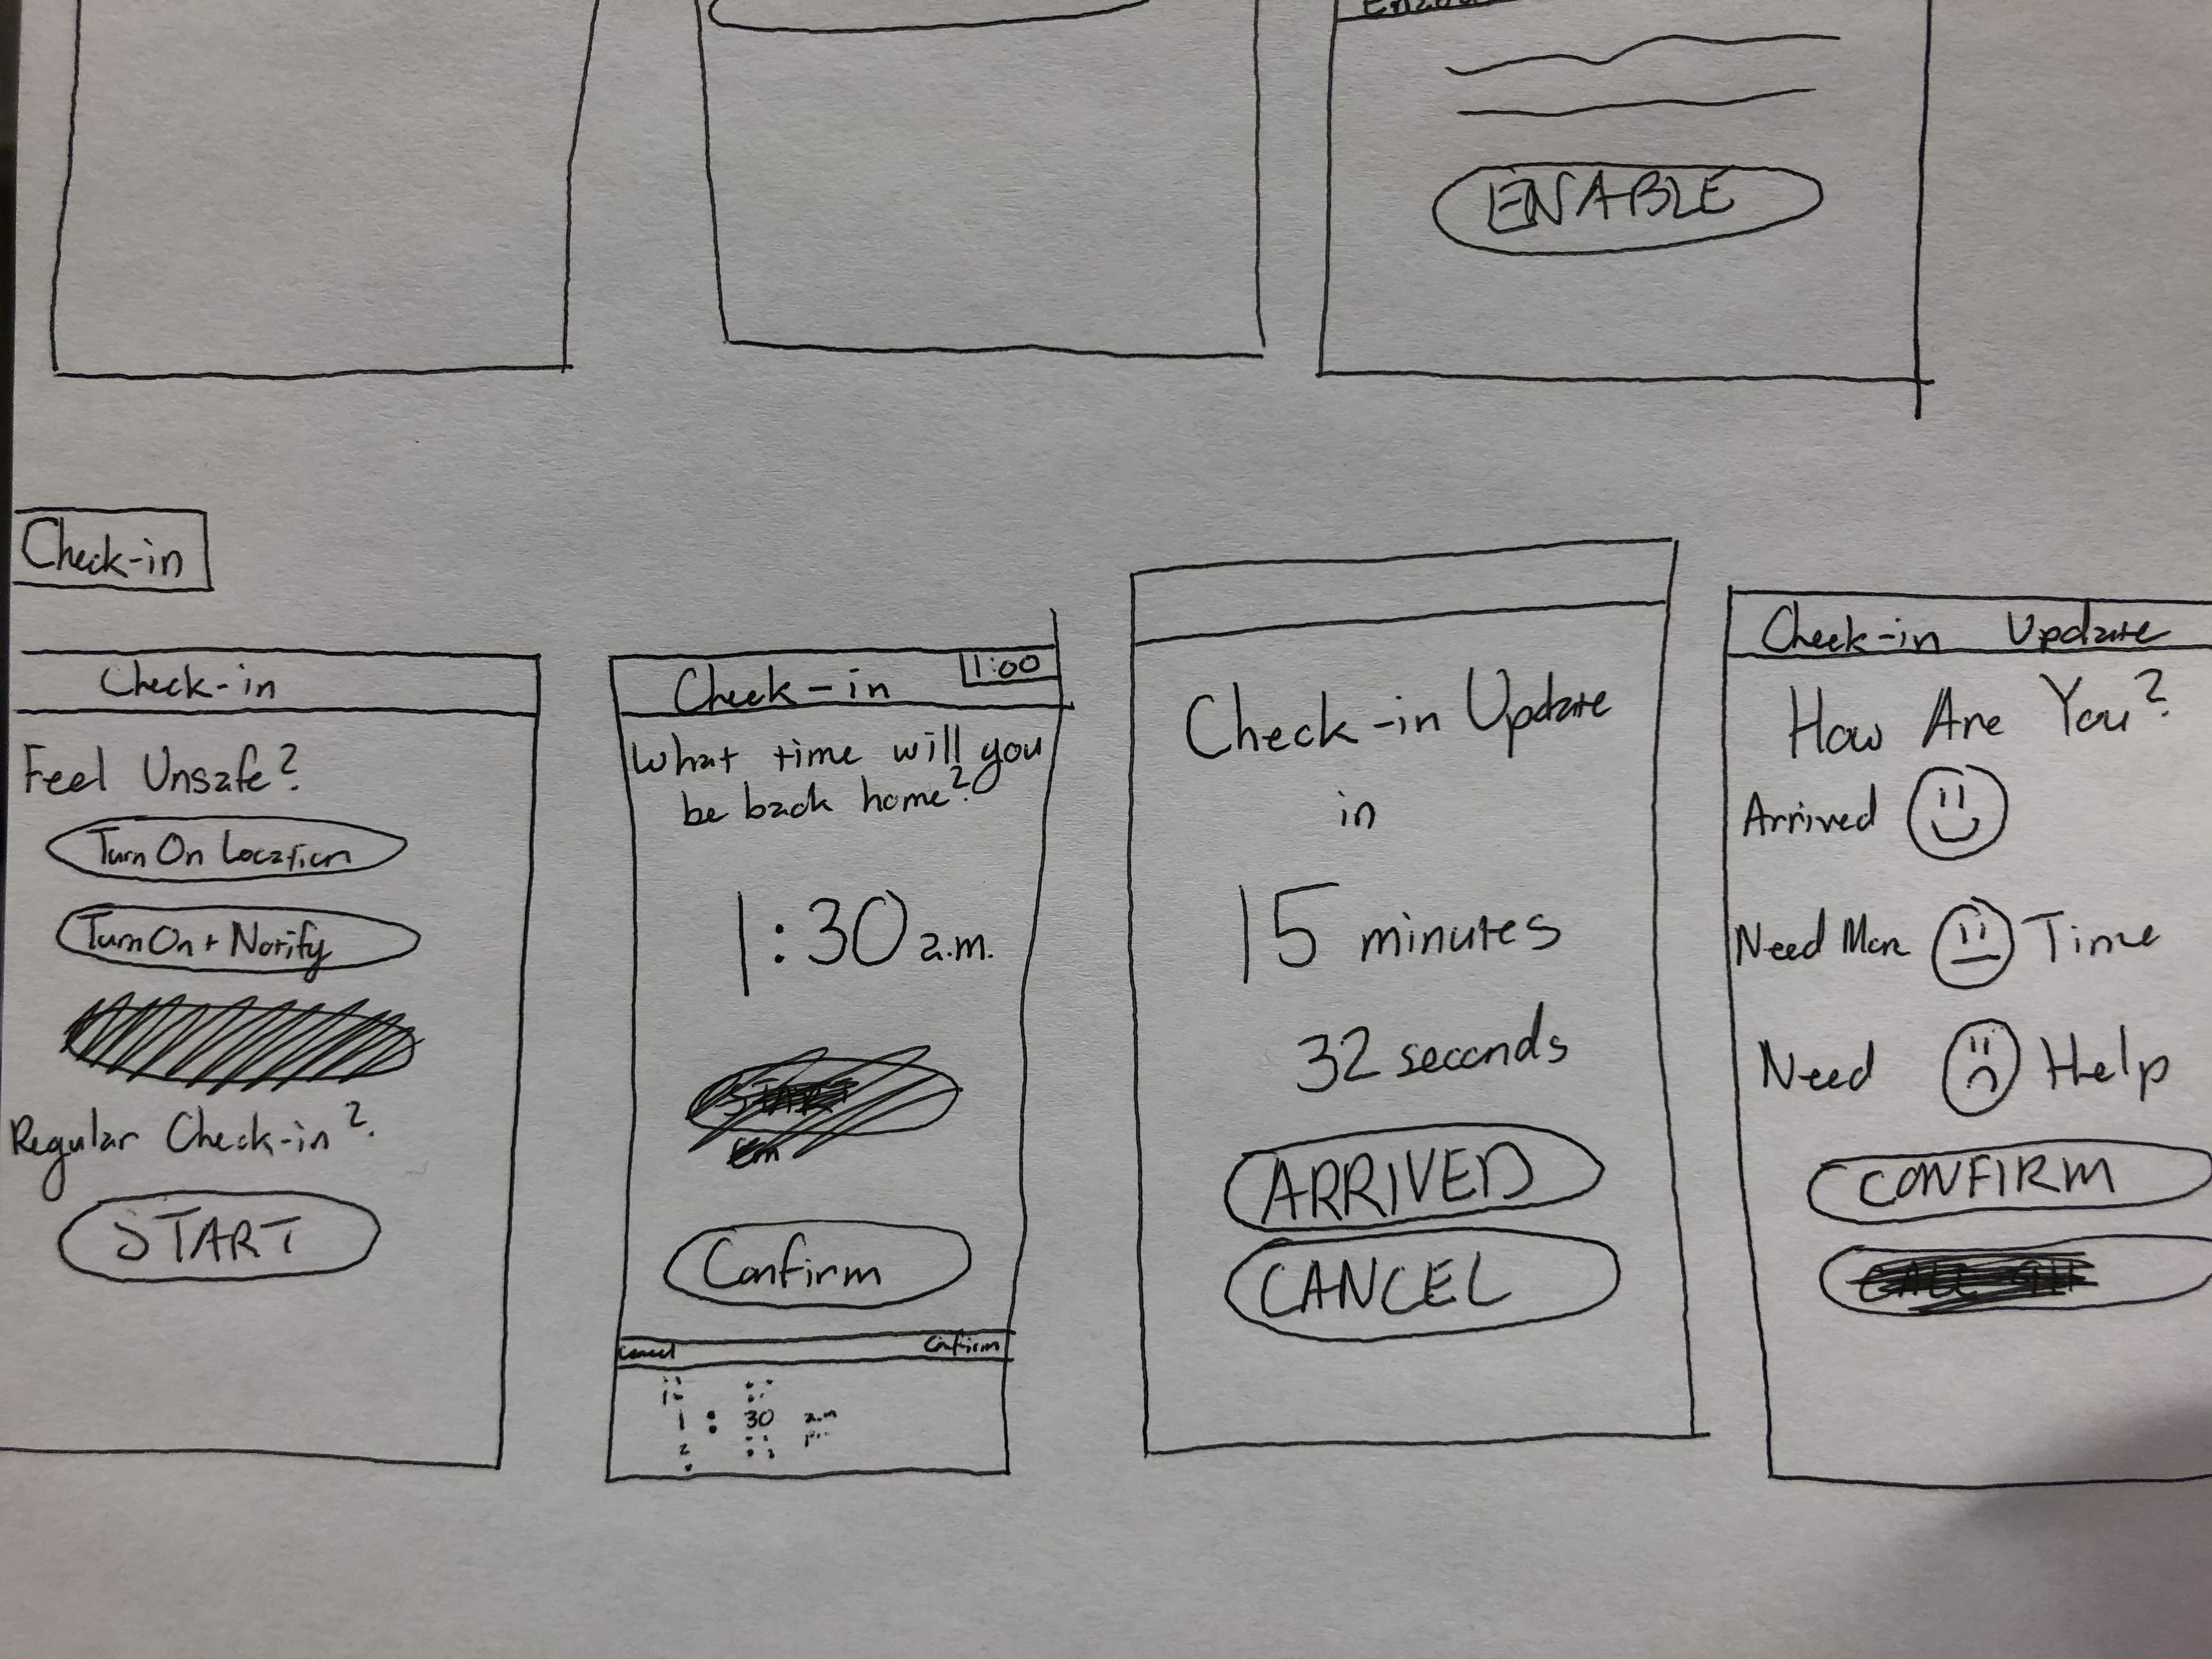 ENABLE
Check-in
Check-in
Feel Unsafe?
Turn On Location
Turn On + Notify
Regular Check-in?
START
Check-in 1:00
What time will you
be back home?
1:30 a.m.
Confirm
Cancel Confirm
1 : 30 a.m
2
Check-in Update
in
15 minutes
32 seconds
ARRIVED
CANCEL
Check-in Update
How Are You?
Arrived
Need More Time
Need Help
CONFIRM